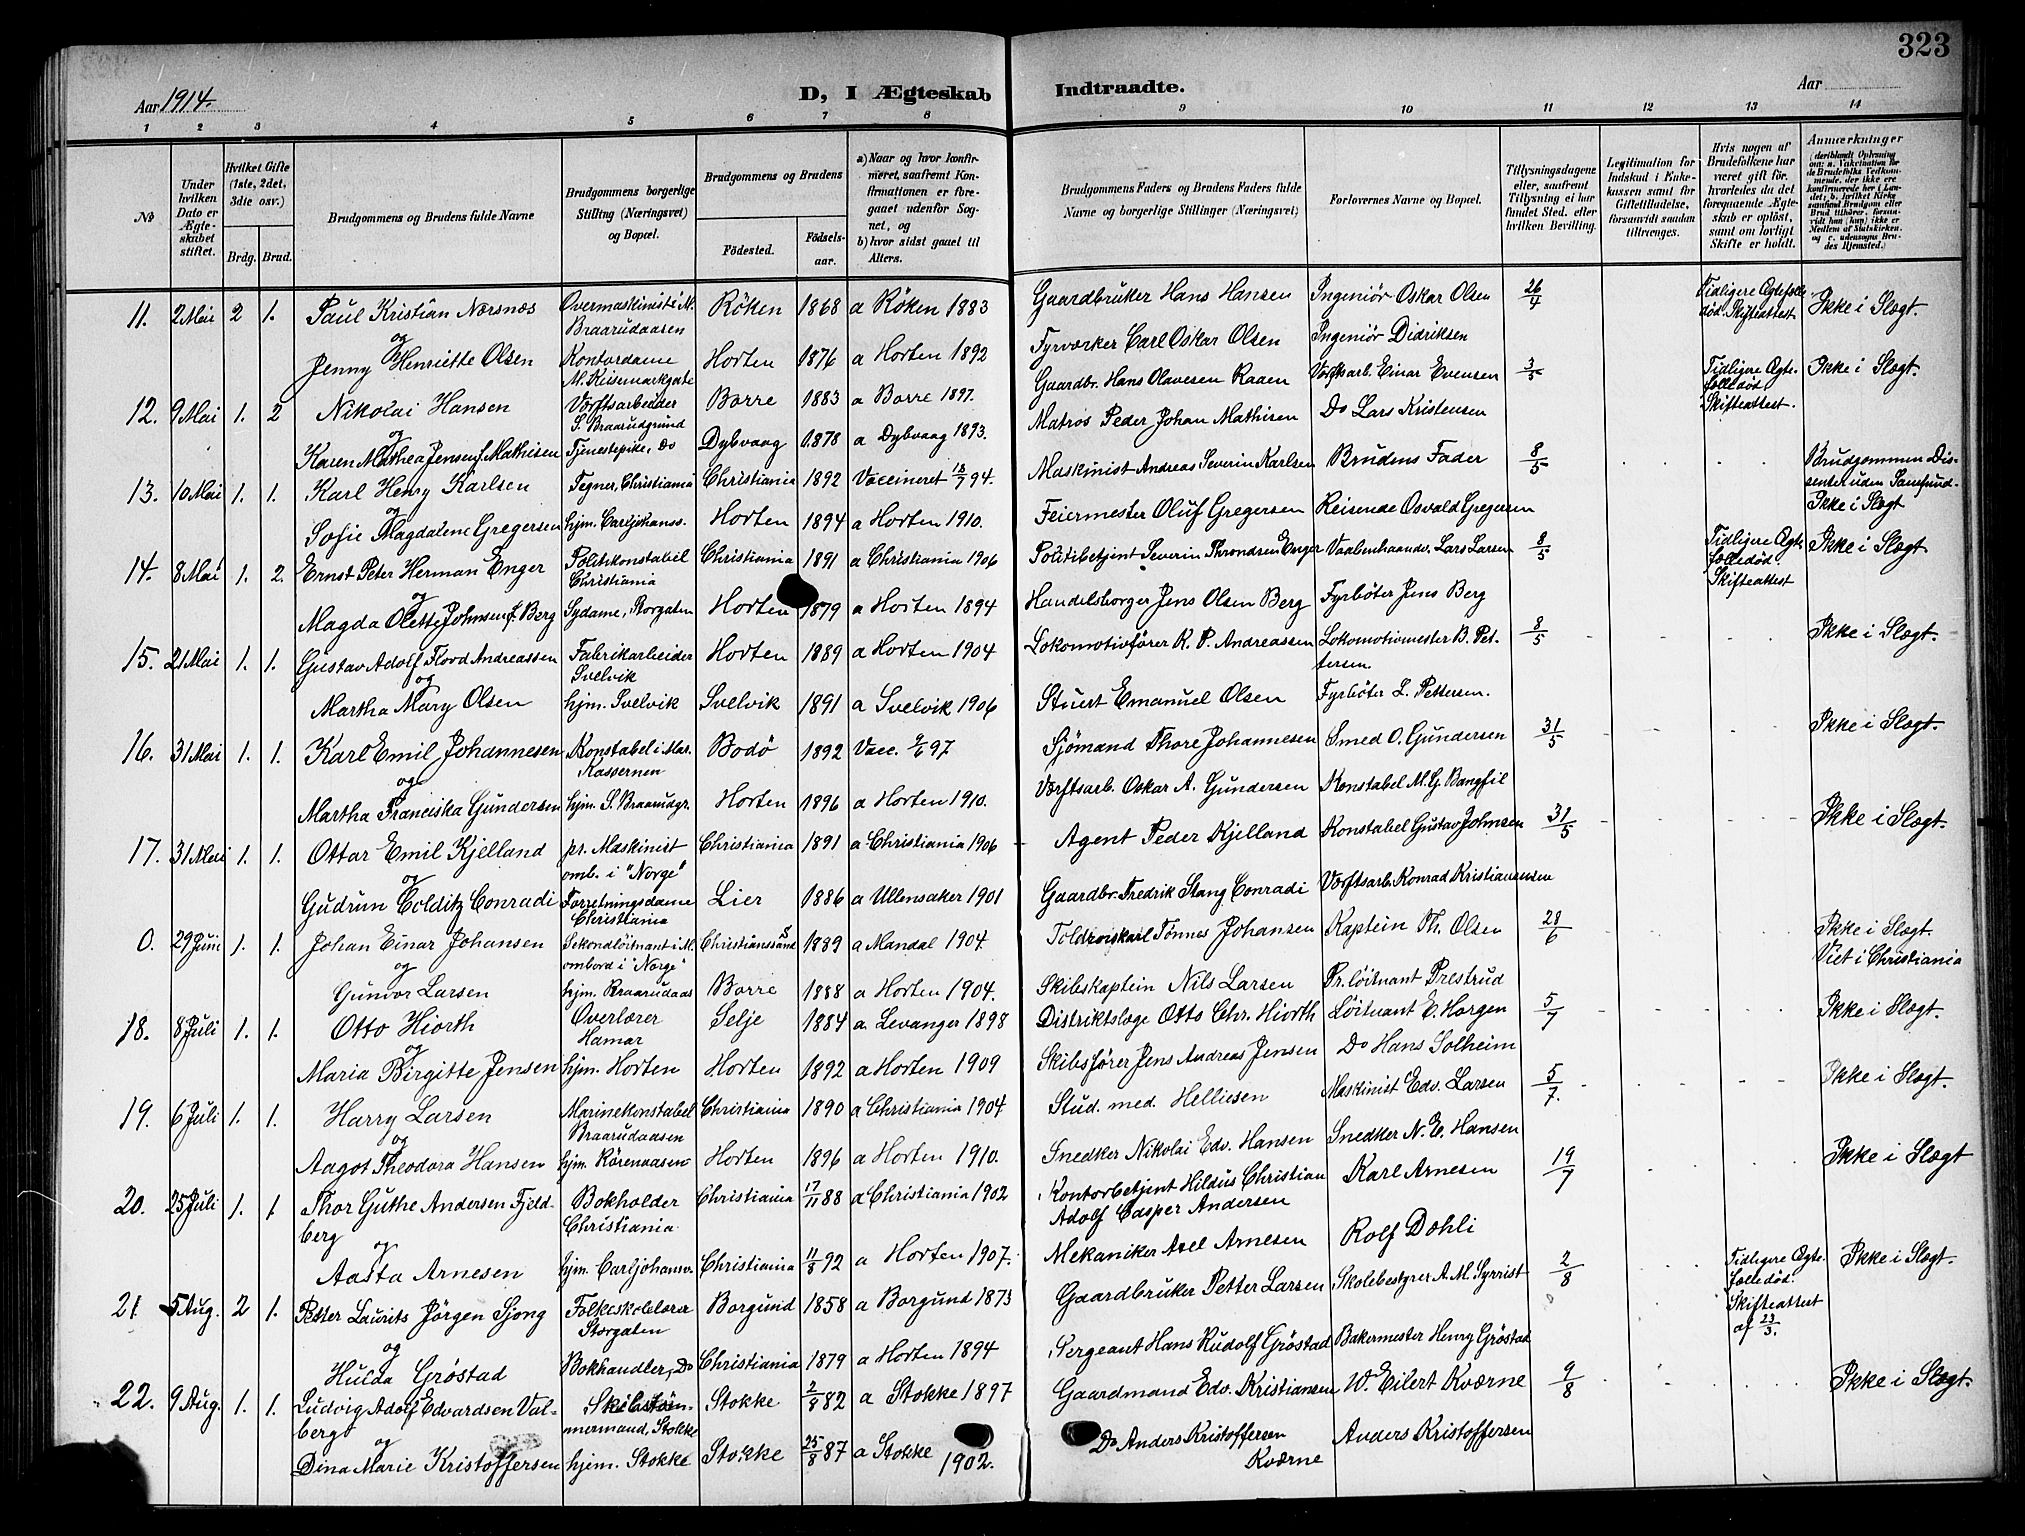 323
Aar 1914.
D, I Ægteskab Indtraadte.
Aar
1 2 3 4 5 6 7 8 9 10 11 12 13 14
No
Under hvilken Dato er Ægteskabet stiftet.
Hvilket Gifte (1ste, 2det, 3die osv.)
Brdg. Brud.
Brudgommens og Brudens fulde Navne
Brudgommens borgerlige Stilling (Næringsvei) og Bopæl.
Brudgommens og Brudens
Fødested.
Fødselsaar.
a) Naar og hvor konfirmeret, saafremt Konfirmationen er foregaaet udenfor Sognet, og
b) hvor sidst gaaet til Alters.
Brudgommens Faders og Brudens Faders fulde Navne og borgerlige Stillinger (Næringsvei)
Forlovernes Navne og Bopæl.
Tillysningsdagene eller, saafremt Tillysning ei har fundet Sted, efter hvilken Bevilling.
Legitimation for Indskud i Enkekassen samt for Giftetilladelse, forsaavidt saadan tiltrænges.
Hvis nogen af Brudefolkene har været gift før, hvorledes da det foregaaende Ægteskab er opløst, samt om lovligt Skifte er holdt.
Anmærkninger
11. 2 Mai 2 1. Paul Kristian Nærsnæs Overmaskinist i M. Braarudaasen Röken 1868 a Röken 1883 Gaardbruker Hans Hansen Ingeniör Oskar Olsen 26/4 Tidligere Ægtefolle död. Skifteattest Ikke i Slægt.
og
Jenny Henriette Olsen Kontordame Horten 1876 a Horten 1892 Fyrværker Carl Oskar Olsen Ingeniör Didriksen
12. 9 Mai 1. 2 Nikolai Hansen Værftsarbeider S. Braarudgrund Borre 1883 a Borre 1897. Gaardbr. Hans Olavesen Raaen Værftsarb. Einar Evensen 3/5 Tidligere Ægtefolle död Skifteattest. Ikke i Slægt.
og
Karen Mathea Jensen f. Mathisen Tjenestepike, do Dybvaag 1878 a Dybvaag 1893. Matros Peder Johan Mathisen Do Lars Kristensen
13. 10 Mai 1. 1. Karl Henry Karlsen Tegner, Christiania Christiania 1892 Vaccineret 18/7 94. Maskinist Andreas Severin Karlsen Brudens Fader 8/5 Brudgommen Dissenter uden Samfund. Ikke i Slægt
og
Sofie Magdalene Gregersen hjm. Carljohanss. Horten 1894 a Horten 1910. Feiermester Oluf Gregersen Reisende Osvald Gregersen
14. 8 Mai 1. 2. Ernst Peter Herman Enger Politikonstabel Christiania Christiania 1891 a Christiania 1906 Politibetjent Severin Throndsen Enger Vaabenhaandv. Lars Larsen 8/5 Tidligere Ægtefolle död. Skifteattest Ikke i Slægt.
og
Magda Olette Johnsen f. Berg Sydame, Storgaten Horten 1879 a Horten 1894 Handelsborger Jens Olsen Berg Fyrböter Jens Berg
15. 21 Mai 1. 1. Gustav Adolf Flood Andreassen Fabrikarbeider Svelvik Horten 1889 a Horten 1904 Lokomotivförer K. P. Andreassen Lokomotivmester B. Pettersen 8/5 Ikke i Slægt.
og
Martha Mary Olsen hjm. Svelvik Svelvik 1891 a Svelvik 1906 Stuert Emanuel Olsen Fyrböter L. Pettersen.
16. 31 Mai 1. 1. Karl Emil Johannesen Konstabel i Mar. Kassernen Bodö 1892 Vacc. 9/6 97 Sjömand Thore Johannesen Smed O. Gundersen 31/5 Ikke i Slægt.
og
Martha Franciska Gundersen hjm. S. Braarudgr. Horten 1896 a Horten 1910. Værftsarb. Oskar A. Gundersen Konstabel M. G. Bangfil
17. 31 Mai 1. 1. Ottar Emil Kjelland pr. Maskinist omb. i "Norge" Christiania 1891 a Christiania 1906 Agent Peder Kjelland Konstabel Gustav Johnsen 31/5 Ikke i Slægt.
og
Gudrun Colditz Conradi Forretningsdame Christiania Lier 1886 a Ullensaker 1901 Gaardbr. Fredrik Stang Conradi Værftsarb. Konrad Kristiansen
0. 29 Juni 1. 1. Johan Einar Johansen Sekondlöitnant i M. ombord i "Norge" Christianssand S 1889 a Mandal 1904. Toldroiskarl Tönnes Johansen Kaptein Th. Olsen 28/6 Ikke i Slægt. Viet i Christiania
og
Gunvor Larsen hjm. Braarudaas Borre 1888 a Horten 1904. Skibskaptein Nils Larsen Pr. löitnant Prestrud
18. 8 Juli 1. 1. Otto Hiorth Overlærer Hamar Selje 1884 a. Levanger 1898 Distriktslæge Otto Chr. Hiorth Löitnant E. Horgen 5/7 Ikke i Slægt.
og
Maria Birgitte Jensen hjm. Horten Horten 1892 a Horten 1909 Skibsförer Jens Andreas Jensen Do Hans Solheim
19. 6 Juli 1. 1. Harry Larsen Marinekonstabel Braarudaasen Christiania 1890 a Christiania 1904 Stud. med. Helliesen Maskinist Edv. Larsen 5/7. Ikke i Slægt.
og
Aagot Theodora Hansen hjm. Rörenaasen Horten 1896 a Horten 1910. Snedker Nikolai Edv. Hansen Snedker N. E. Hansen
20. 25 Juli 1. 1 Thor Guthe Andersen Fjeldberg Bokholder Christiania Christiania 17/11 88 a Christiania 1902 Kontorbetjent Hildus Christian Adolf Casper Andersen Karl Arnesen 19/7 Ikke i Slægt
og
Aasta Arnesen hjm. Carljohansv. Christiania 11/8 92 a Horten 1907. Mekaniker Axel Arnesen Rolf Dæhli
21 5 Aug. 2 1. Petter Laurits Jörgen Sjong Folkeskolelærer Storgaten Borgund 1858 a Borgund 1873 Gaardbruker Petter Larsen Skolebestyrer A. M. Syrrist 2/8 Tidligere Ægtefælle död. Skifteattest af 23/3. Ikke i Slægt.
og
Hulda Gröstad Bokhandler, Do Christiania 1879 a Horten 1894 Sergeant Hans Rudolf Gröstad Bakermester Henry Gröstad
22. 9 Aug. 1. 1. Ludvig Adolf Edvardsen Valberg Skibstömmermand, Stokke Stokke 2/8 82 a Stokke 1897 Gaardmand Edv. Kristiansen W. Eilert Kværne 9/8 Ikke i Slægt.
og
Dina Marie Kristoffersen hjem. Stokke Stokke 25/8 87 a Stokke 1902. Do Anders Kristoffersen Kværne Anders Kristoffersen